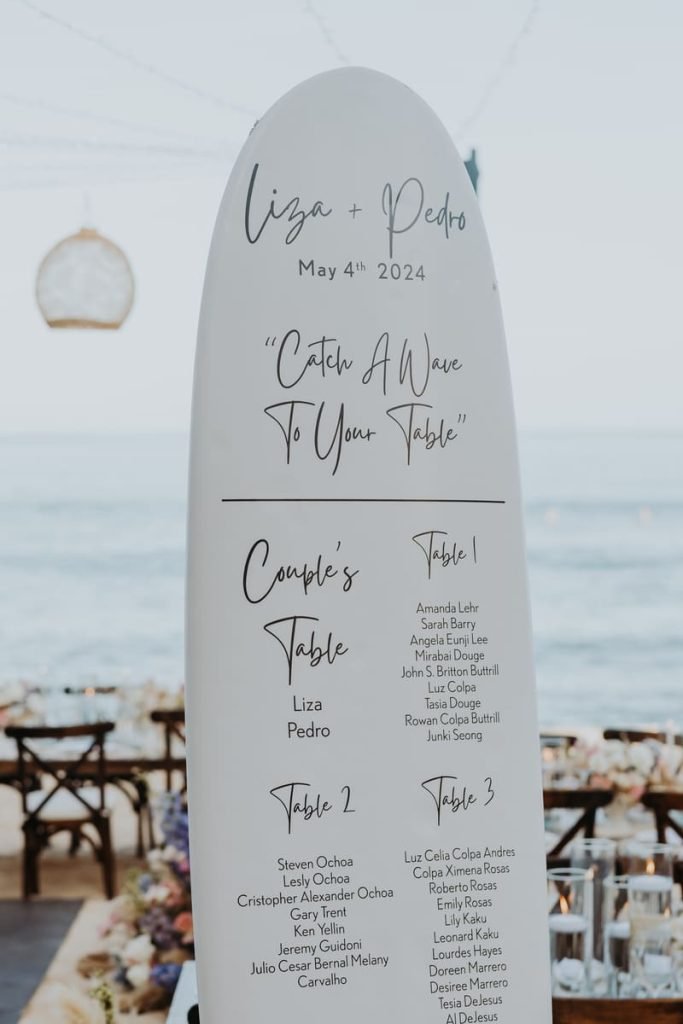 Liza + Pedro
May 4th 2024
"Catch A Wave
To Your Table"
Couple's
Table
Liza
Pedro
Table 1
Amanda Lehr
Sarah Barry
Angela Eunji Lee
Mirabai Douge
John S. Britton Buttrill
Luz Colpa
Tasia Douge
Rowan Colpa Buttrill
Junki Seong
Table 2
Steven Ochoa
Lesly Ochoa
Cristopher Alexander Ochoa
Gary Trent
Ken Yellin
Jeremy Guidoni
Julio Cesar Bernal Melany
Carvalho
Table 3
Luz Celia Colpa Andres
Colpa Ximena Rosas
Roberto Rosas
Emily Rosas
Lily Kaku
Leonard Kaku
Lourdes Hayes
Doreen Marrero
Desiree Marrero
Tesia DeJesus
Al DeJesus